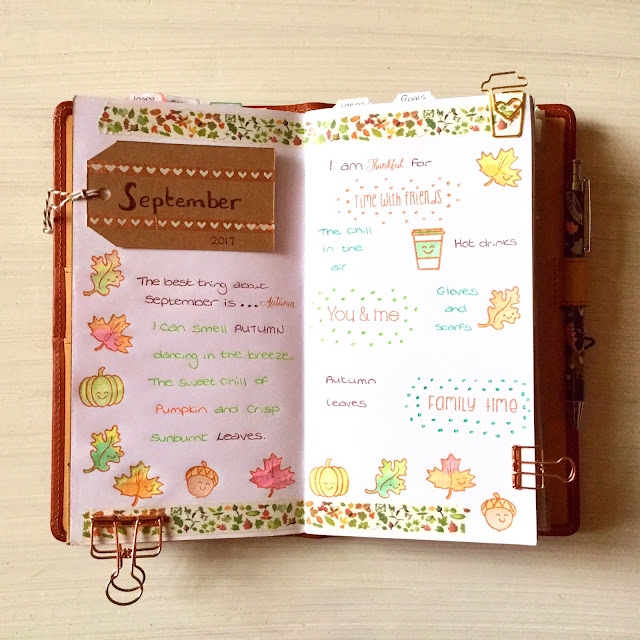 Goals
September
2017
The best thing about
september is... Autumn
I can smell AUTUMN
dancing in the breeze.
The sweet chill of
Pumpkin and crisp
sunburnt leaves.
I am Thankful for
TIME WITH FRIENDS
The chill
in the
air
Hot drinks
Gloves
and
scarfs
You & me
Autumn
leaves
FAMILY TIME